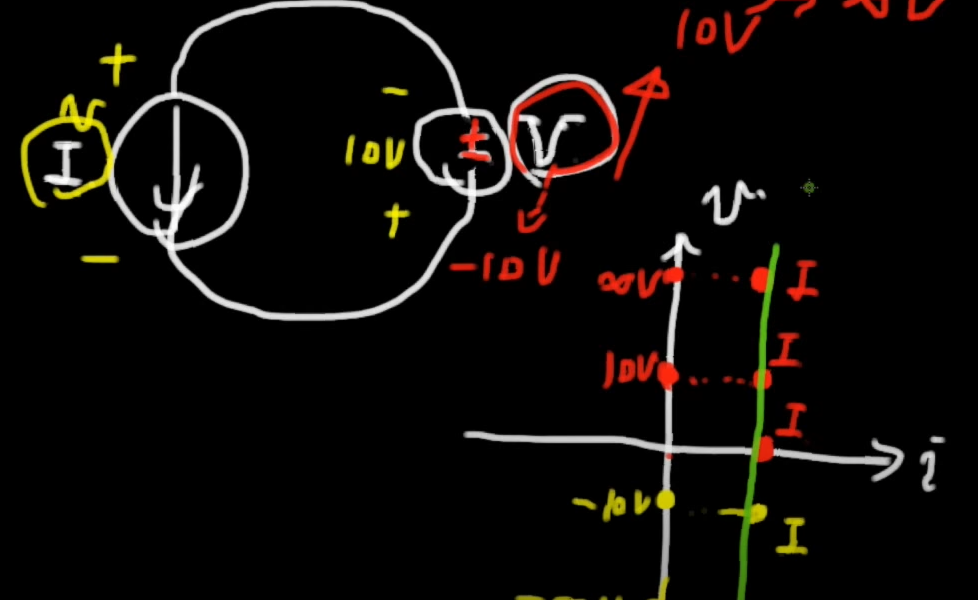 10V
+
-
v
I
10V
±
V
+
-
-10V
v
∞V I
10V I
I
i
-10V I